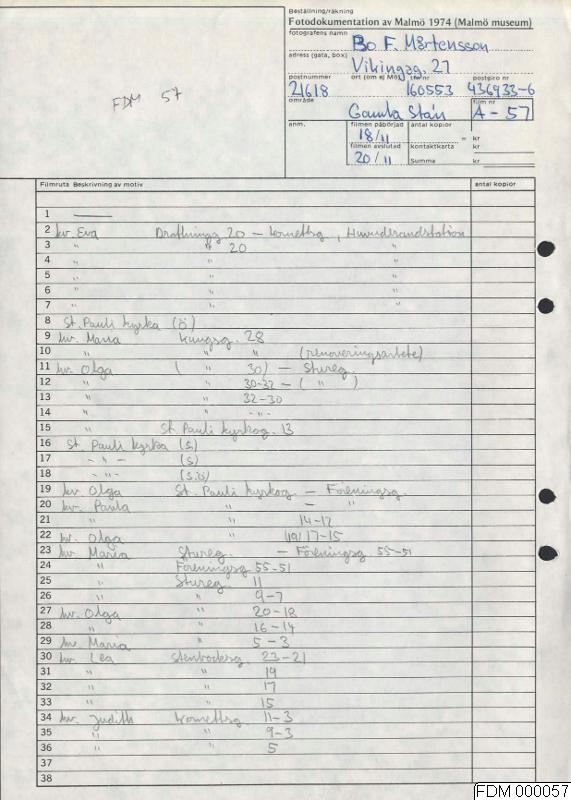 FDM 57
Beställning/räkning
Fotodokumentation av Malmö 1974 (Malmö museum)
fotografens namn
Bo F. Mårtensson
adress (gata, box)
Vikingag. 27
postnummer ort (om ej Mö) tfn nr postgiro nr
21618 160553 436933-6
område film nr
Gamla Stan A-57
anm. filmen påbörjad antal kopior
18/11 = kr
filmen avslutad kontaktkarta kr
20/11 Summa kr
Filmruta Beskrivning av motiv antal kopior
1 —
2 kv. Eva Drottningg 20 – Kornettsg, Huvudbrandstation
3 " " 20 "
4 " " "
5 " " "
6 " " "
7 " " "
8 St. Pauli kyrka (ö)
9 kv. Maria Kungsg. 28
10 " " " (renoveringsarbete)
11 kv. Olga ( " 30) – Stureg.
12 " " 30-32 – ( " )
13 " " 32-30
14 " " -"-
15 St. Pauli kyrkog. 13
16 St. Pauli kyrka (s)
17 -"- (s)
18 -"- (s.ö)
19 kv. Olga St. Pauli kyrkog – Föreningsg.
20 kv. Paula " – "
21 " " 14-12
22 kv. Olga " (19)17-15
23 kv. Maria Stureg. – Föreningsg. 55-51
24 " Föreningsg 55-51
25 " Stureg. 11
26 " " 9-7
27 kv. Olga " 20-18
28 " " 16-14
29 kv. Maria " 5-3
30 kv. Lea Stenbocksg. 23-21
31 " " 19
32 " " 17
33 " " 15
34 kv. Judith Kornettsg. 11-3
35 " " 9-3
36 " " 5
37
38
FDM 000057